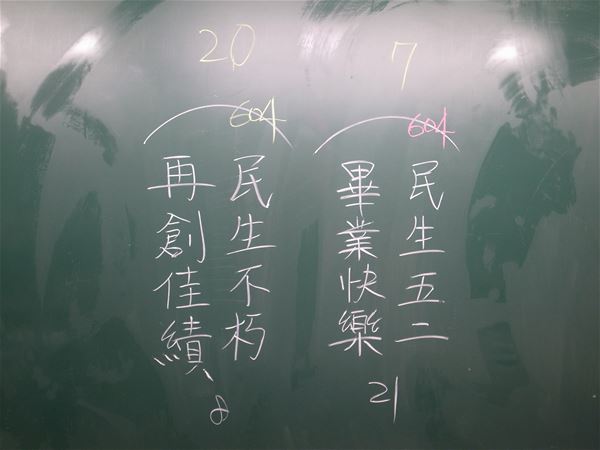 7
604
民生五二
畢業快樂
21
20
604
民生不朽
再創佳績
8